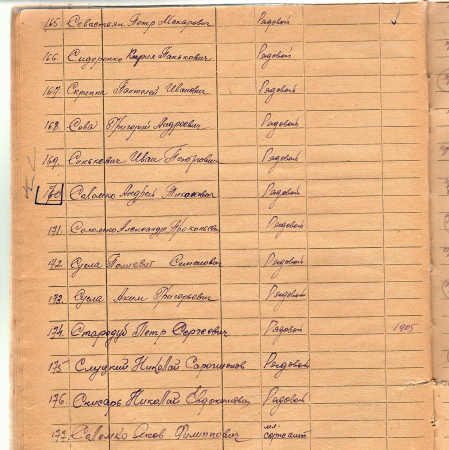 165. Севастьян Петр Макарович Рядовой
166. Сидоренко Кирил Панькович Рядовой
167. Скрипка Пантелей Иванович Рядовой
168. Сова Григорий Андреевич Рядовой
169. Синькевич Иван Петрович Рядовой
170. Саломко Андрей Тихонович Рядовой
171. Соломко Александр Прокопьевич Рядовой
172. Сусла Семенович Рядовой
173. Сусла Аким Григорьевич Рядовой
174. Стародуб Петр Сергеевич Рядовой 1905
175 Слуцкий Николай Рядовой
176. Снисарь Николай Евдокимович Рядовой
177. Саломко Яков Филиппович мл. сержант